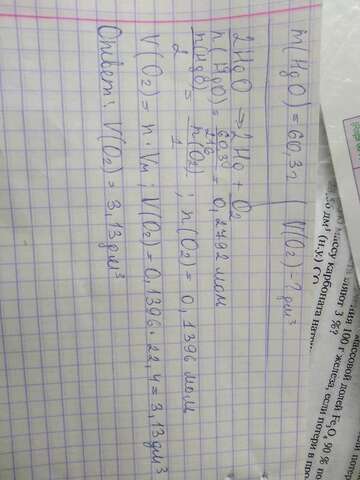 m(HgO) = 60,3г | V(O₂) - ? дм³
2HgO → 2Hg + O₂
n(HgO) = 60,3/216 = 0,2792 моль
n(HgO)/2 = n(O₂)/1 ; n(O₂) = 0,1396 моль
V(O₂) = n · Vм ; V(O₂) = 0,1396 · 22,4 = 3,13 дм³
Ответ: V(O₂) = 3,13 дм³
массовой долей Fe₃O₄ 90 %
100 г железа, если потери в про
3 %?
массу карбоната натри
дм³ (н.у.)